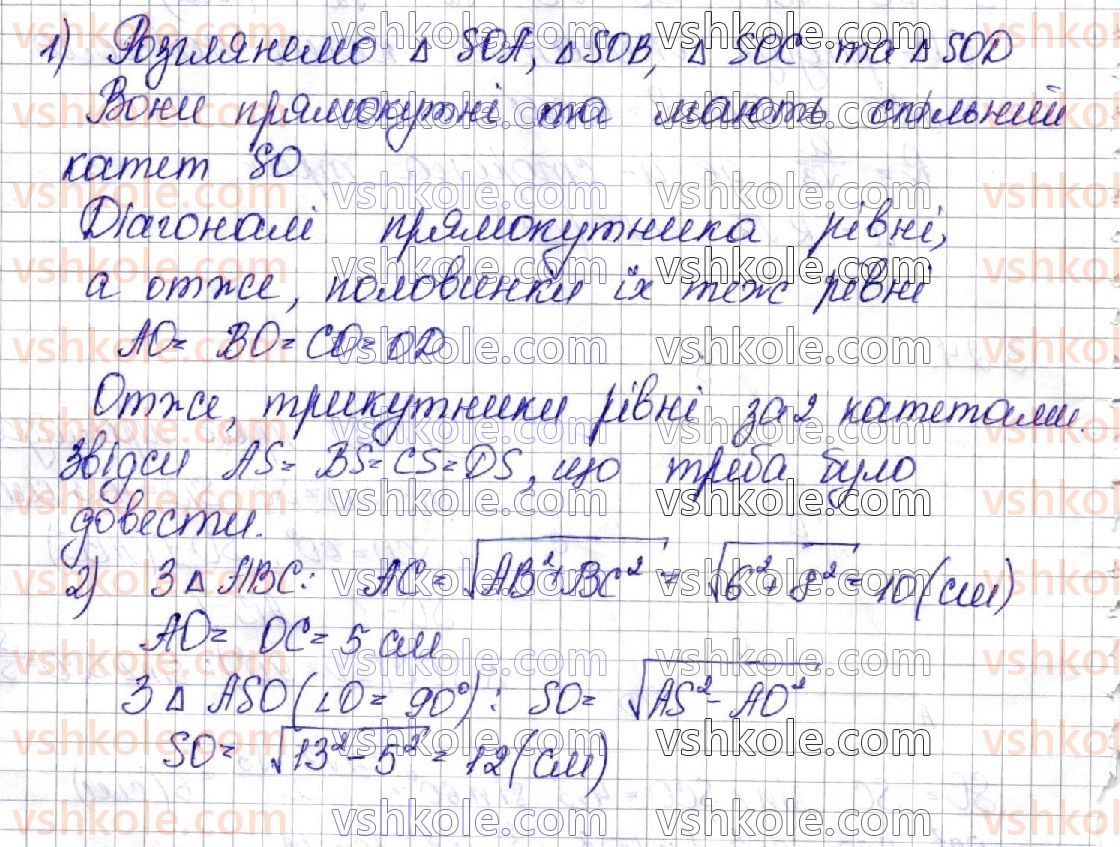 1) Розглянемо △ SOA, △ SOB, △ SOC та △ SOD
Вони прямокутні та мають спільний
катет SO
Діагоналі прямокутника рівні,
а отже, половинки їх теж рівні
AO = BO = CO = OD
Отже, трикутники рівні за 2 катетами.
Звідси AS = BS = CS = DS, що треба було
довести.
2) З △ ABC: AC = √AB² + BC² = √6² + 8² = 10 (см)
AO = OC = 5 см
З △ ASO (∠O = 90°): SO = √AS² - AO²
SO = √13² - 5² = 12 (см)
vshkole.com